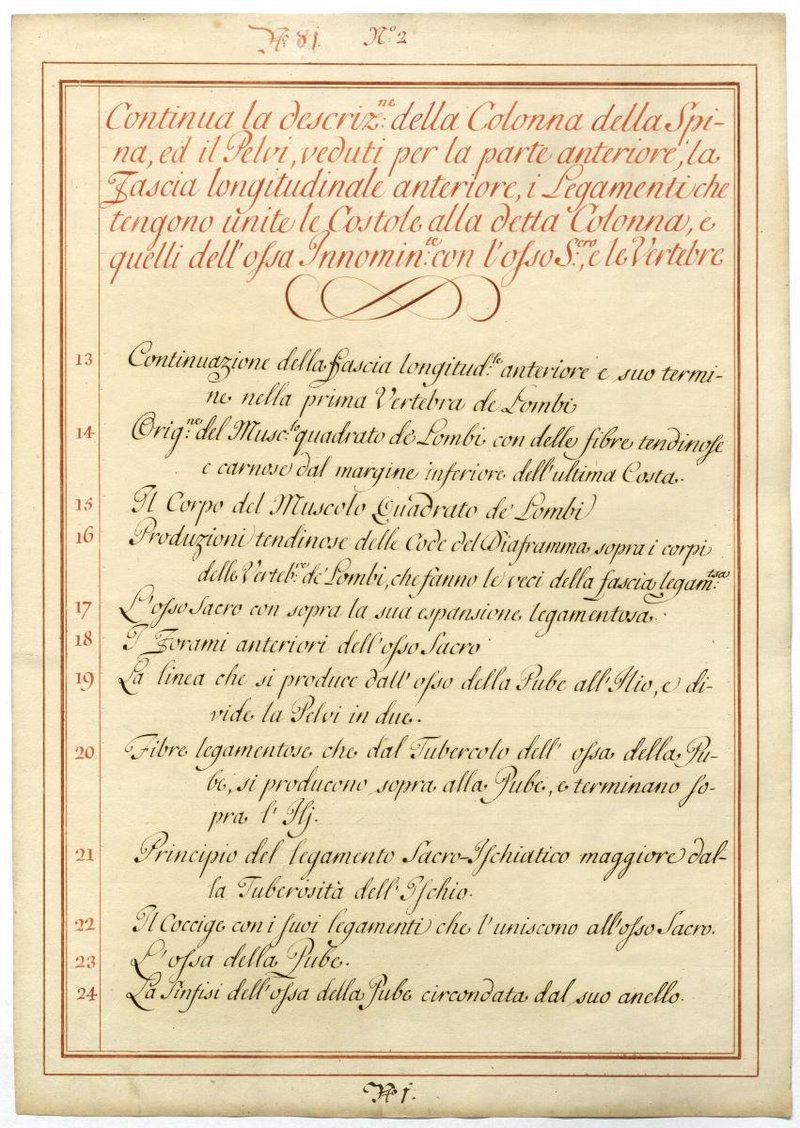 Nº 81. Nº 2
Continua la descriz.ne della Colonna della Spi-
na, ed il Pelvi, veduti per la parte anteriore, la
Fascia longitudinale anteriore, i Legamenti che
tengono unite le Costole alla detta Colonna, e
quelli dell' ossa Innomin.te con l'osso S.cro, e le Vertebre
13 Continuazione della Fascia longitud.le anteriore e suo termi-
ne nella prima Vertebra de Lombi
14 Orig.ne del Musc.lo quadrato de' Lombi con delle fibre tendinose
e carnose dal margine inferiore dell'ultima Costa.
15 Il Corpo del Muscolo Quadrato de' Lombi
16 Produzioni tendinose delle Code del Diaframma sopra i corpi
delle Verteb.re de' Lombi, che fanno le veci della fascia legam.tsa
17 L'osso Sacro con sopra la sua espansione legamentosa.
18 I Forami anteriori dell'osso Sacro
19 La linea che si produce dall' osso della Pube all' Ilio, e di-
vide la Pelvi in due.
20 Fibre legamentose che dal Tubercolo dell' ossa della Pu-
be, si producono sopra alla Pube, e terminano so-
pra l' Ilj.
21 Principio del legamento Sacro-Ischiatico maggiore dal-
la Tuberosità dell' Ischio.
22 Il Coccige con i suoi legamenti che l'uniscono all'osso Sacro.
23 L'ossa della Pube.
24 La Sinfisi dell'ossa della Pube circondata dal suo anello.
Nº 1.